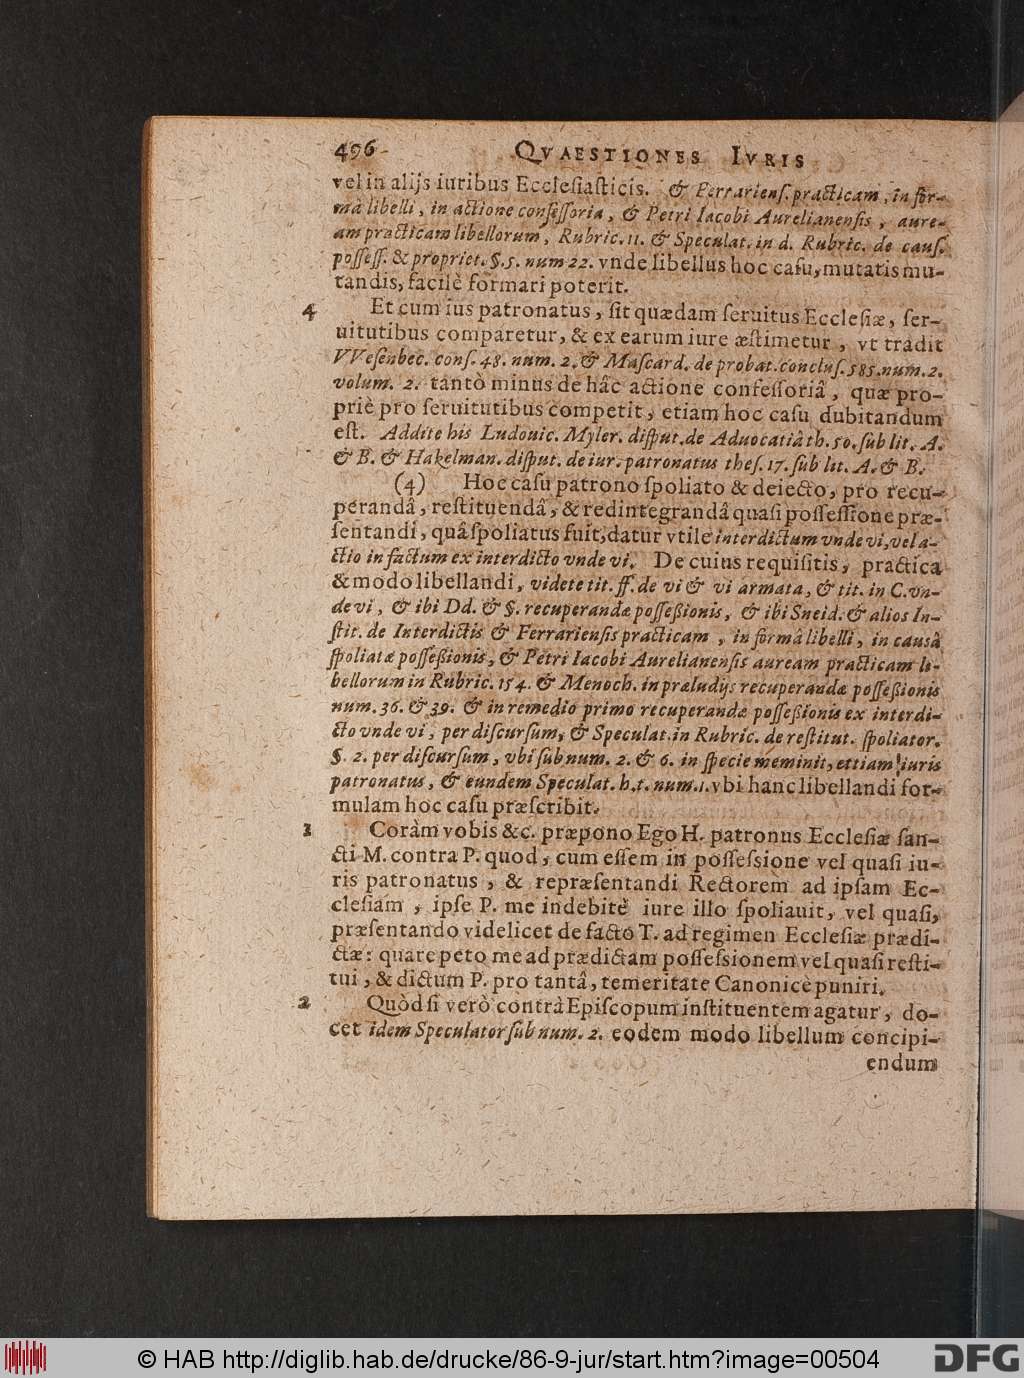 496 QVAESTIONES IVRIS
vel in alijs iuribus Ecclesiasticis. & Ferrariens. practicam, in for-
mâ libelli, in actione confessoria, & Petri Iacobi Aurelianensis, aure-
am practicam libellorum, Rubric. 11. & Speculat. in d. Rubric. de caus.
possess. & propriet. §. 5. num 22. vnde libellus hoc casu, mutatis mu-
tandis, facilè formari poterit.
4 Et cum ius patronatus, sit quædam seruitus Ecclesiæ, ser-
uitutibus comparetur, & ex earum iure æstimetur, vt tradit
VVesenbec. cons. 48. num. 2. & Mascard. de probat. conclus. 585. num. 2.
volum. 2. tantò minus de hâc actione confessoriâ, quæ pro-
priè pro seruitutibus competit, etiam hoc casu dubitandum
est. Addite his Ludouic. Myler. disput. de Aduocatiâ th. 50. sub lit. A.
& B. & Hakelman. disput. de iur. patronatus thes. 17. sub lit. A. & B.
(4) Hoc casu patrono spoliato & deiecto, pro recu-
perandâ, restituendâ, & redintegrandâ quasi possessione præ-
sentandi, quâ spoliatus fuit, datur vtile interdictum vnde vi, vel a-
ctio in factum ex interdicto vnde vi. De cuius requisitis, practica
& modo libellandi, videte tit. ff. de vi & vi armata, & tit. in C. vn-
de vi, & ibi Dd. & §. recuperandæ possessionis, & ibi Sneid. & alios In-
stit. de Interdictis & Ferrariensis practicam, in formâ libelli, in causâ
spoliatæ possessionis, & Petri Iacobi Aurelianensis auream practicam li-
bellorum in Rubric. 154. & Menoch. in præludijs recuperandæ possessionis
num. 36. & 39. & in remedio primo recuperandæ possessionis ex interdi-
cto vnde vi, per discursum, & Speculat. in Rubric. de restitut. spoliator.
§. 2. per discursum, vbi sub num. 2. & 6. in specie meminit, ettiam iuris
patronatus, & eundem Speculat. h. t. num. 1. vbi hanc libellandi for-
mulam hoc casu præscribit.
1 Coràm vobis &c. præpono Ego H. patronus Ecclesiæ san-
cti M. contra P. quod, cum essem in possessione vel quasi iu-
ris patronatus, & repræsentandi Rectorem ad ipsam Ec-
clesiam, ipse P. me indebitè iure illo spoliauit, vel quasi,
præsentando videlicet de facto T. ad regimen Ecclesiæ prædi-
ctæ: quare peto me ad prædictam possessionem vel quasi resti-
tui, & dictum P. pro tantâ, temeritate Canonicè puniri.
2 Quòd si verò contrà Episcopum instituentem agatur, do-
cet idem Speculator sub num. 2. eodem modo libellum concipi-
endum
© HAB http://diglib.hab.de/drucke/86-9-jur/start.htm?image=00504
DFG